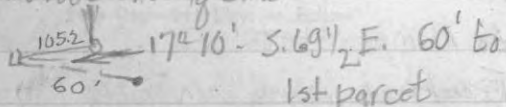 105.2
17° 10'- S. 69½ E. 60' to
60'
1st parcel